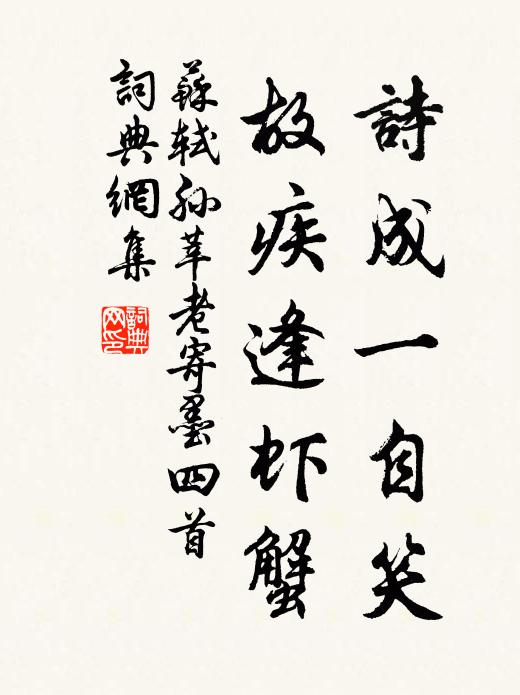 詩成一自笑
故疾逢虾蟹
蘇軾孙莘老寄墨四首
詞典網集
詞典网印